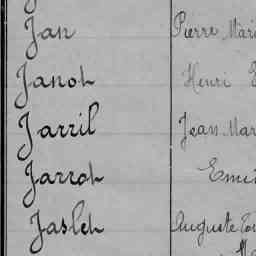 Jan Pierre Mari
Janot Henri
Jarril Jean Mar
Jarrot Emi
Jaslet Auguste